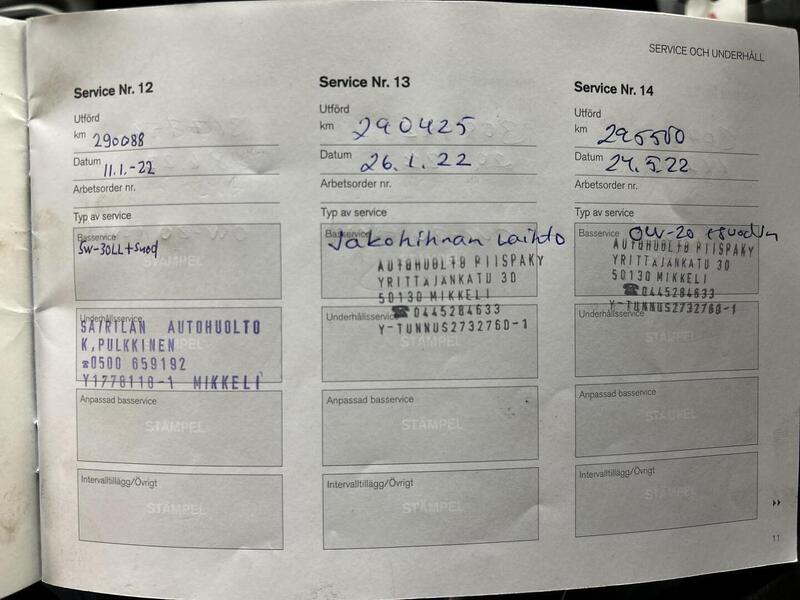 SERVICE OCH UNDERHÅLL
Service Nr. 12
Utförd
km 290088
Datum 11.1.-22
Arbetsorder nr.
Typ av service
Basservice
5W-30LL+suod
STÄMPEL
Underhållsservice
SAIRILAN AUTOHUOLTO
K.PULKKINEN
☎0500 659192
Y1778116-1 MIKKELI
Anpassad basservice
STÄMPEL
Intervalltillägg/Övrigt
STÄMPEL
Service Nr. 13
Utförd
km 290425
Datum 26.1.22
Arbetsorder nr.
Typ av service
Basservice
Jakohihnan vaihto
AUTOHUOLTO PIISPAKY
YRITTÄJÄNKATU 30
50130 MIKKELI
☎0445284633
Y-TUNNUS2732760-1
Underhållsservice
STÄMPEL
Anpassad basservice
STÄMPEL
Intervalltillägg/Övrigt
STÄMPEL
Service Nr. 14
Utförd
km 295550
Datum 24.5.22
Arbetsorder nr.
Typ av service
Basservice 0W-20
AUTOHUOLTO PIISPAKY
YRITTÄJÄNKATU 30
50130 MIKKELI
☎0445284633
Y-TUNNUS2732760-1
Underhållsservice
STÄMPEL
Anpassad basservice
STÄMPEL
Intervalltillägg/Övrigt
STÄMPEL
11